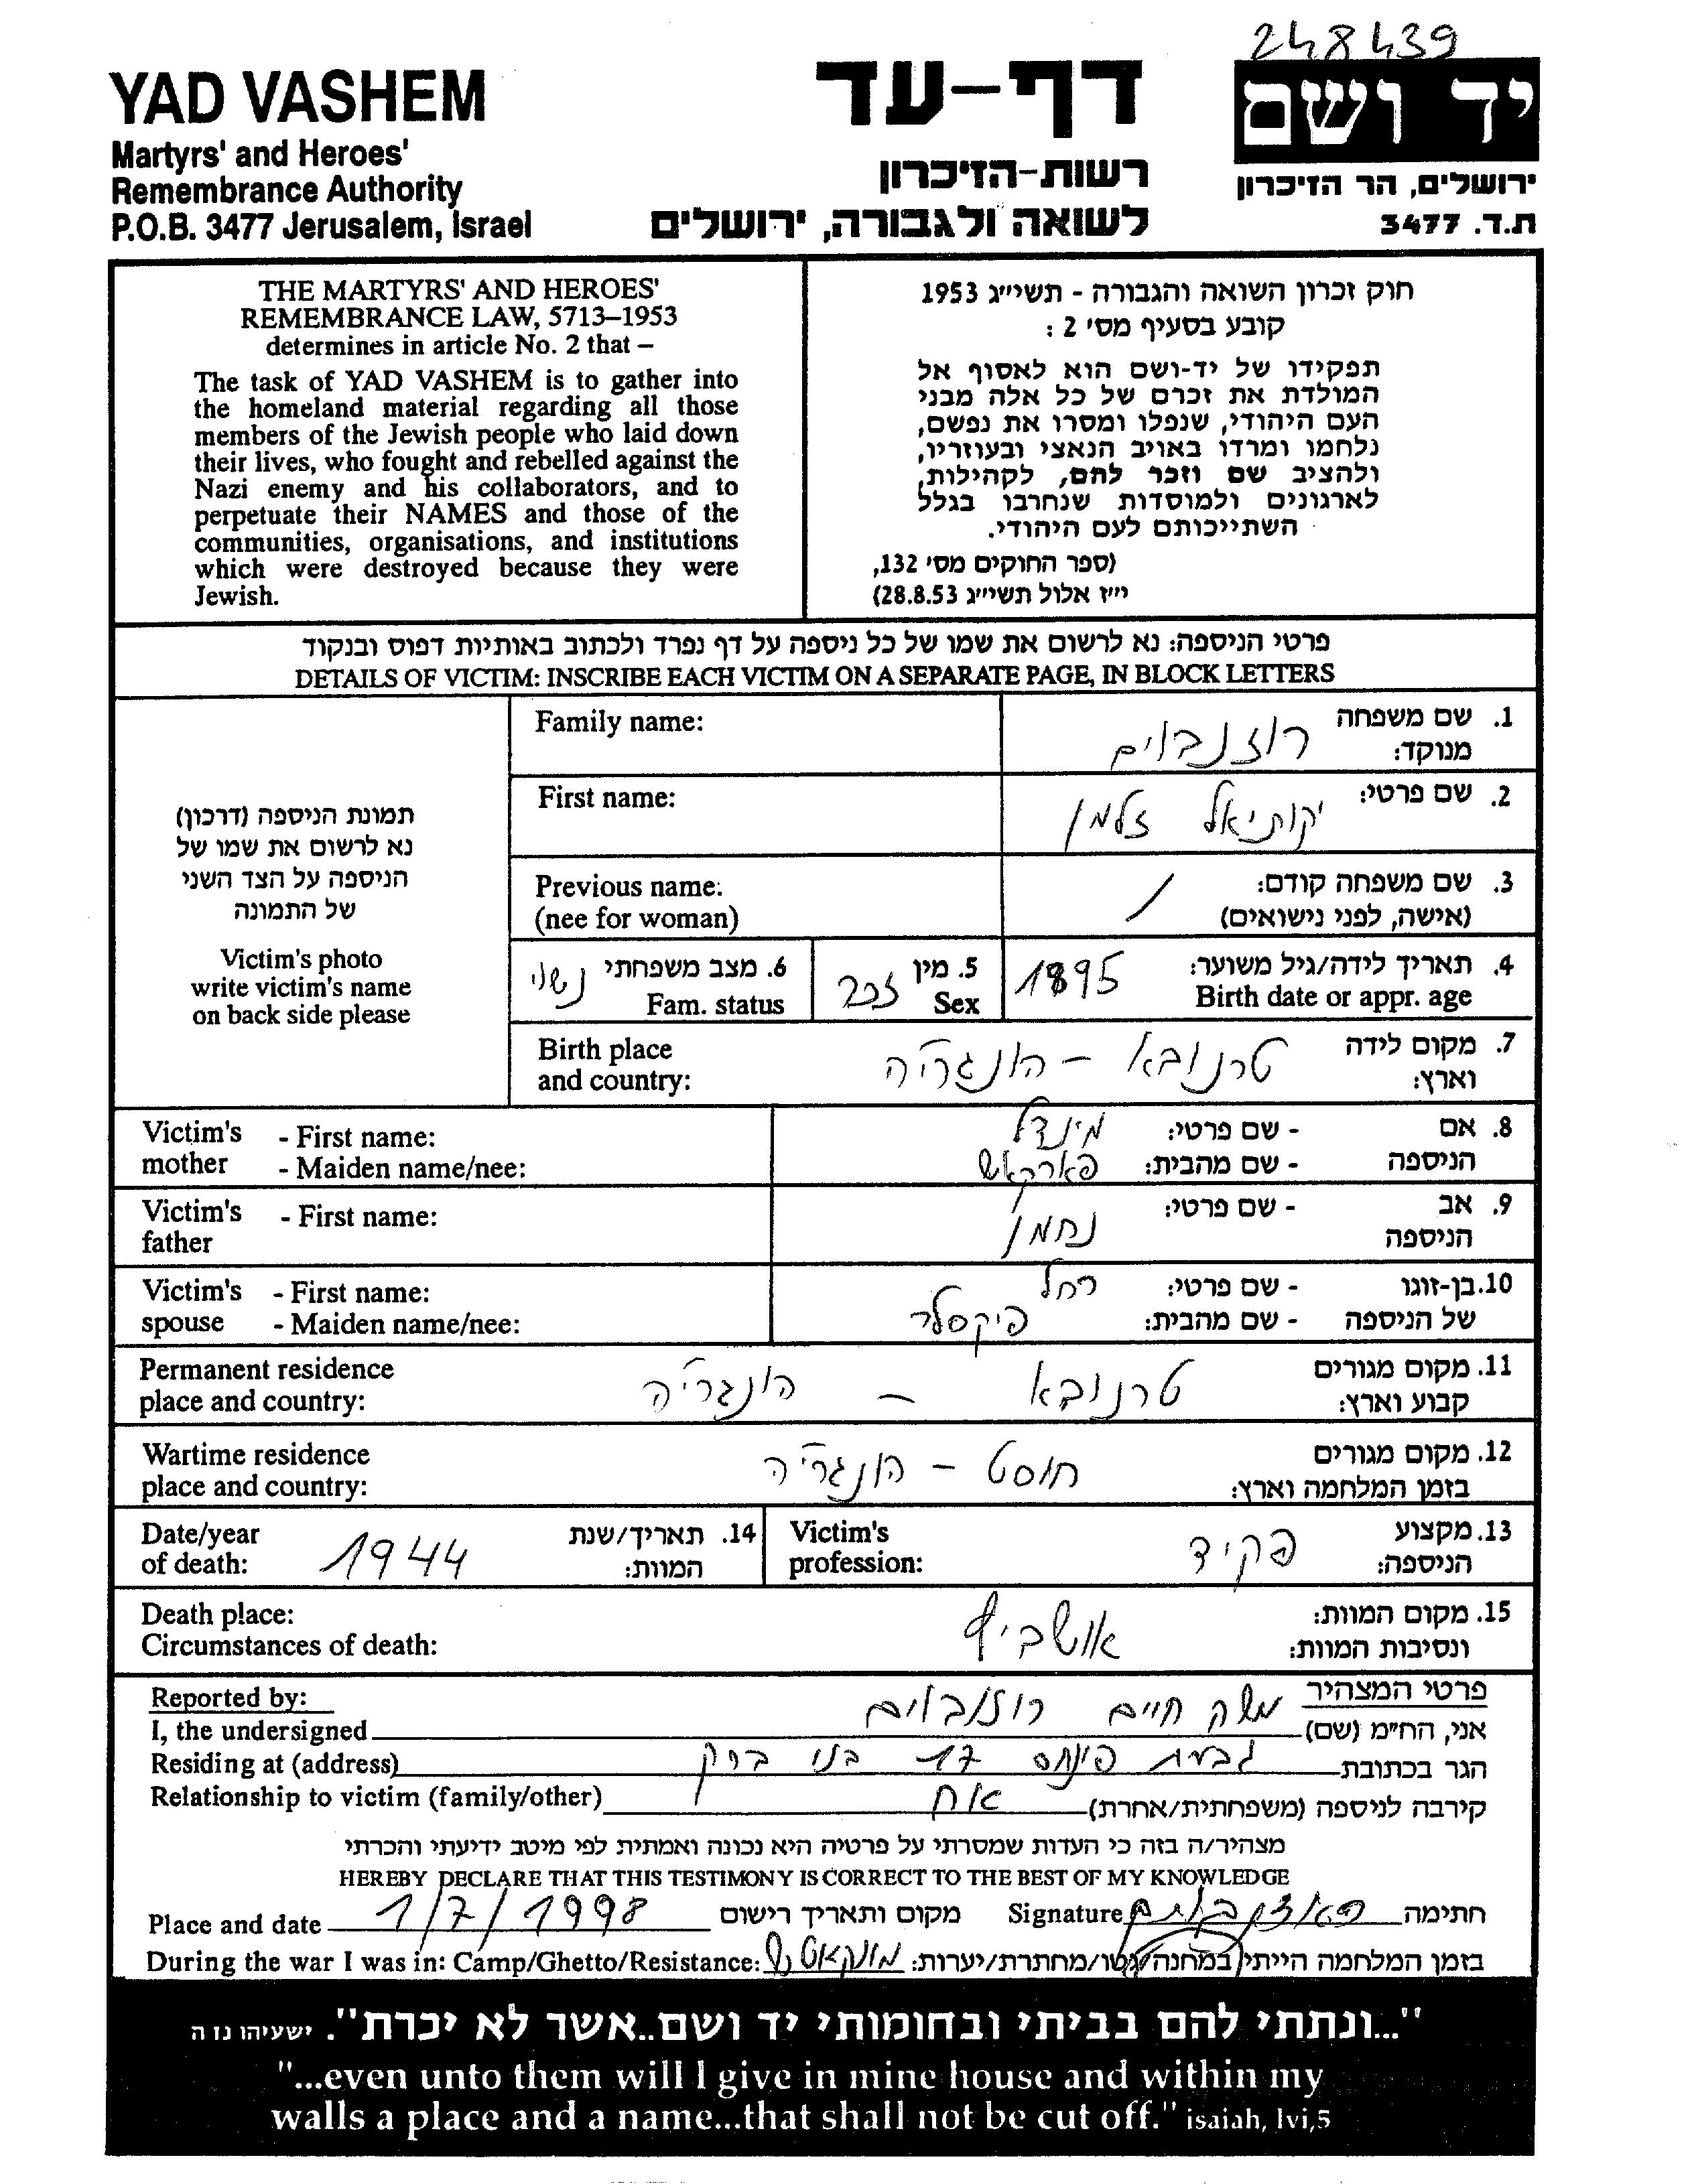 248439
YAD VASHEM
Martyrs' and Heroes'
Remembrance Authority
P.O.B. 3477 Jerusalem, Israel
דף-עד
רשות-הזיכרון
לשואה ולגבורה, ירושלים
יד ושם
ירושלים, הר הזיכרון
ת.ד. 3477
THE MARTYRS' AND HEROES'
REMEMBRANCE LAW, 5713–1953
determines in article No. 2 that –
The task of YAD VASHEM is to gather into
the homeland material regarding all those
members of the Jewish people who laid down
their lives, who fought and rebelled against the
Nazi enemy and his collaborators, and to
perpetuate their NAMES and those of the
communities, organisations, and institutions
which were destroyed because they were
Jewish.
חוק זכרון השואה והגבורה - תשי״ג 1953
קובע בסעיף מס׳ 2 :
תפקידו של יד-ושם הוא לאסוף אל
המולדת את זכרם של כל אלה מבני
העם היהודי, שנפלו ומסרו את נפשם,
נלחמו ומרדו באויב הנאצי ובעוזריו,
ולהציב שם וזכר להם, לקהילות,
לארגונים ולמוסדות שנחרבו בגלל
השתייכותם לעם היהודי.
(ספר החוקים מס׳ 132,
י״ז אלול תשי״ג 28.8.53)
פרטי הניספה: נא לרשום את שמו של כל ניספה על דף נפרד ולכתוב באותיות דפוס ובנקוד
DETAILS OF VICTIM: INSCRIBE EACH VICTIM ON A SEPARATE PAGE, IN BLOCK LETTERS
תמונת הניספה (דרכון)
נא לרשום את שמו של
הניספה על הצד השני
של התמונה
Victim's photo
write victim's name
on back side please
Family name: רוזנבוים 1. שם משפחה
מנוקד:
First name: יקותיאל זלמן 2. שם פרטי:
Previous name: / 3. שם משפחה קודם:
(nee for woman) (אישה, לפני נישואים)
6. מצב משפחתי נשוי 5. מין זכר 1895 4. תאריך לידה/גיל משוער:
Fam. status Sex Birth date or appr. age
Birth place טרנובא - הונגריה 7. מקום לידה
and country: וארץ:
Victim's - First name: מינדל - שם פרטי: 8. אם
mother - Maiden name/nee: פארקאש - שם מהבית: הניספה
Victim's - First name: נחמן - שם פרטי: 9. אב
father הניספה
Victim's - First name: רחל - שם פרטי: 10. בן-זוגו
spouse - Maiden name/nee: פיקסלר - שם מהבית: של הניספה
Permanent residence טרנובא - הונגריה 11. מקום מגורים
place and country: קבוע וארץ:
Wartime residence חוסט - הונגריה 12. מקום מגורים
place and country: בזמן המלחמה וארץ:
Date/year 1944 14. תאריך/שנת Victim's פקיד 13. מקצוע
of death: המוות: profession: הניספה:
Death place: אושביץ 15. מקום המוות:
Circumstances of death: ונסיבות המוות:
Reported by: פרטי המצהיר
I, the undersigned משה חיים רוזנבוים אני, הח״מ (שם)
Residing at (address) גבעת פינחס 17 בני ברק הגר בכתובת
Relationship to victim (family/other) אח קירבה לניספה (משפחתית/אחרת)
מצהיר/ה בזה כי העדות שמסרתי על פרטיה היא נכונה ואמתית לפי מיטב ידיעתי והכרתי
HEREBY DECLARE THAT THIS TESTIMONY IS CORRECT TO THE BEST OF MY KNOWLEDGE
Place and date 1/7/1998 מקום ותאריך רישום Signature חתימה
During the war I was in: Camp/Ghetto/Resistance: מונקאטש בזמן המלחמה הייתי במחנה/גטו/מחתרת/יערות:
"...ונתתי להם בביתי ובחומותי יד ושם..אשר לא יכרת". ישעיהו נו ה
"...even unto them will I give in mine house and within my
walls a place and a name...that shall not be cut off." isaiah, lvi,5